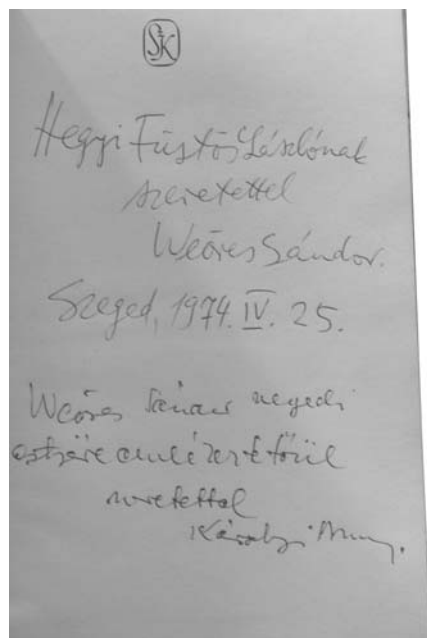 SzK
Hegyi Füstös Lászlónak
szeretettel
Weöres Sándor.
Szeged, 1974. IV. 25.
Weöres Sándor szegedi
estjére emlékeztetőül
szeretettel
Károlyi Amy.